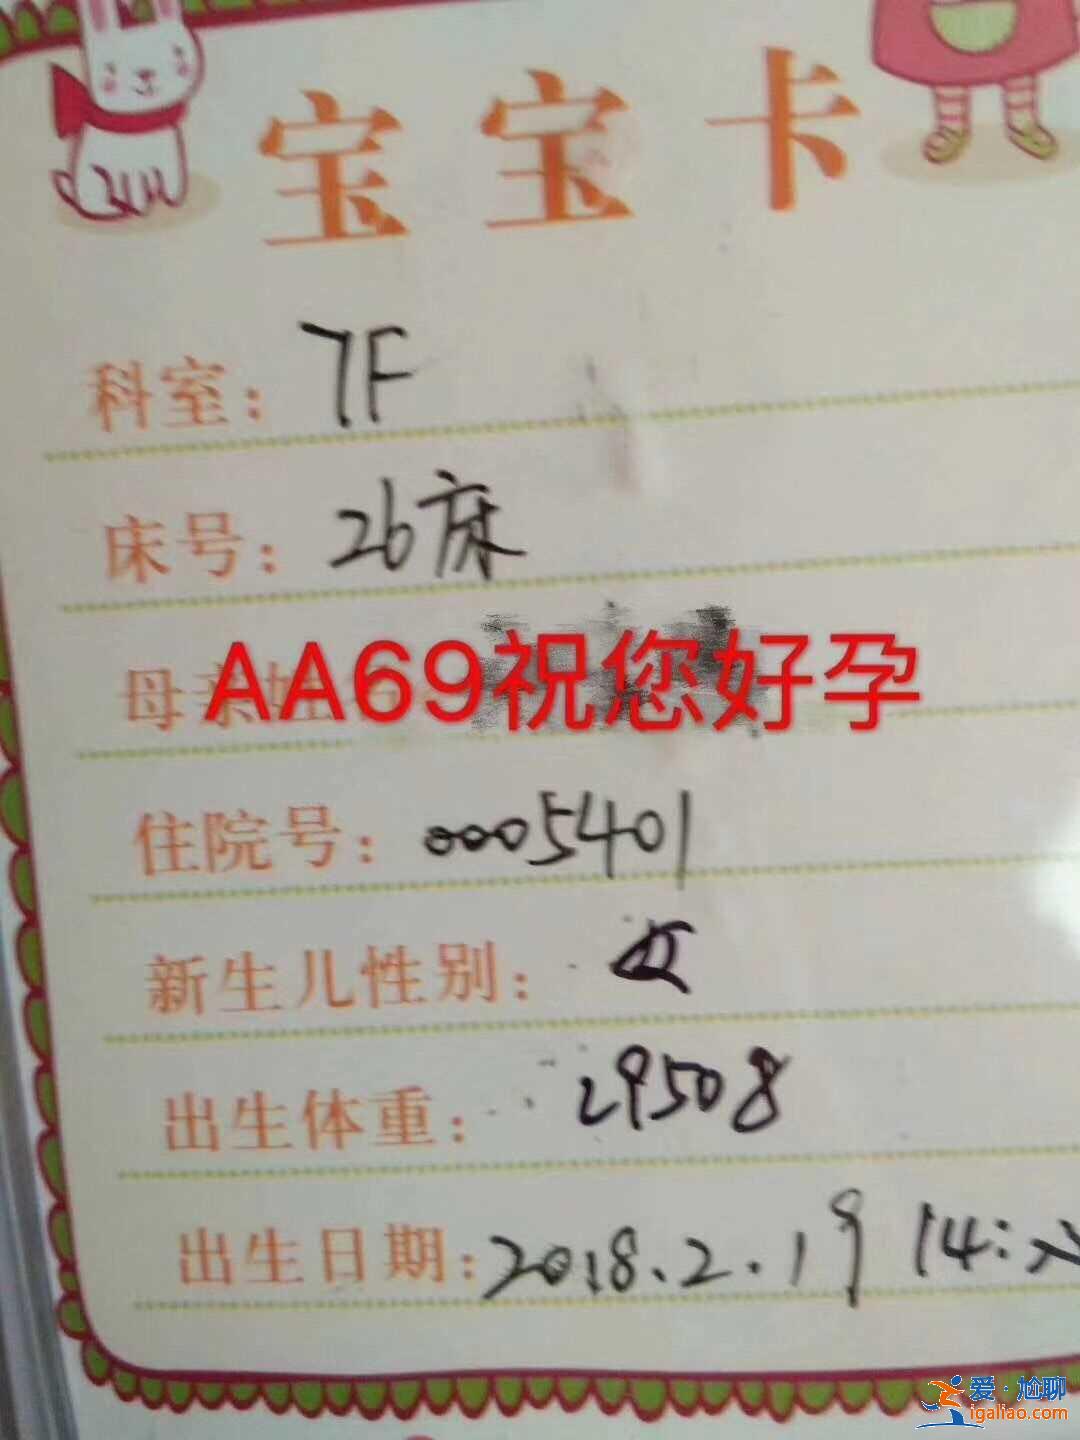 宝宝卡
科室：7F
床号：26床
母亲姓
AA69祝您好孕
住院号：0005401
新生儿性别：女
出生体重：2950g
出生日期：2018.2.19 14:
爱·尬聊
igaliao.com